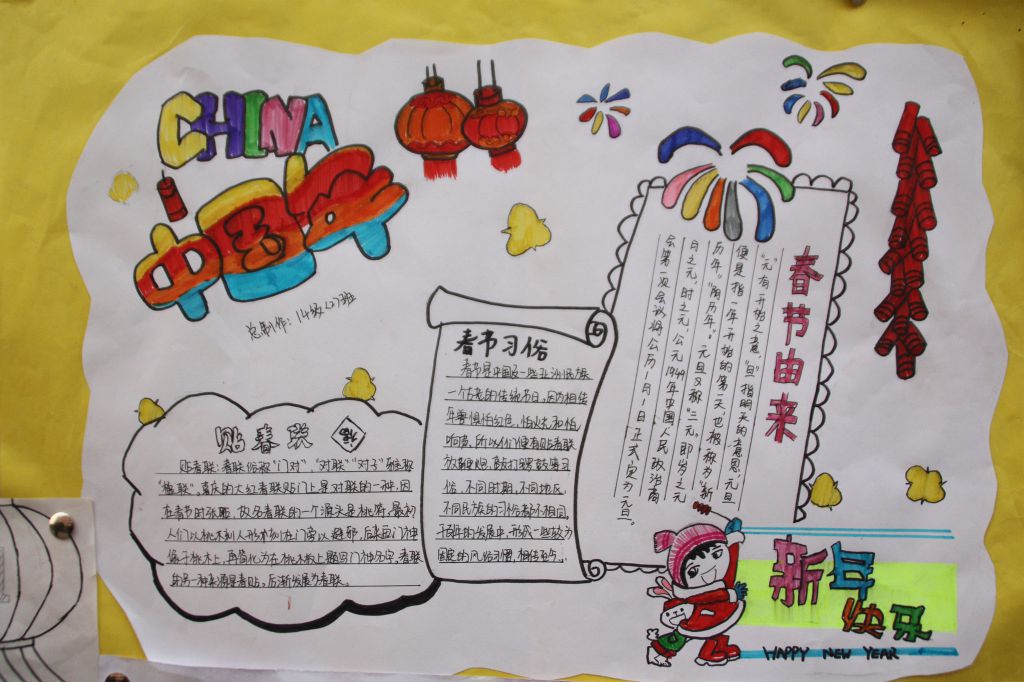 CHINA
中国年
总制作：14级(2)班
春节由来
“元”有开始之意，“旦”指明天的意思元旦
便是指一年开始的第一天，也被称为“新
历年”“阳历年”。元旦又称“三元，即岁之元
月之元，时之元，公元1949年中国人民政治商
会第一次会议将公历1月1日正式定为元旦。
春节习俗
春节是中国及一些亚洲民族
一个古老的传统节日，因为相传
年兽惧怕红色，怕火和怕
响声，所以人们便有贴春联
放鞭炮，敲打锣鼓等习
俗，不同时期，不同地区，
不同民族的习俗都不相同，
于百年的发展中，形成一些较为
固定的风俗习惯，相传至今。
贴春联
福
贴春联：春联俗称“门对”，“对联”“对子”
“楹联”，喜庆的大红春联贴门上是对联的一种，因
在春节时张贴，故名春联的一个源头是桃符，最初
人们以桃木刻人形挂在门旁以避邪，后来画门神
像于桃木上，再简化为在桃木板上题写门神名字，春联
的另一种来源是春贴，后渐发展为春联。
新年
快乐
HAPPY NEW YEAR